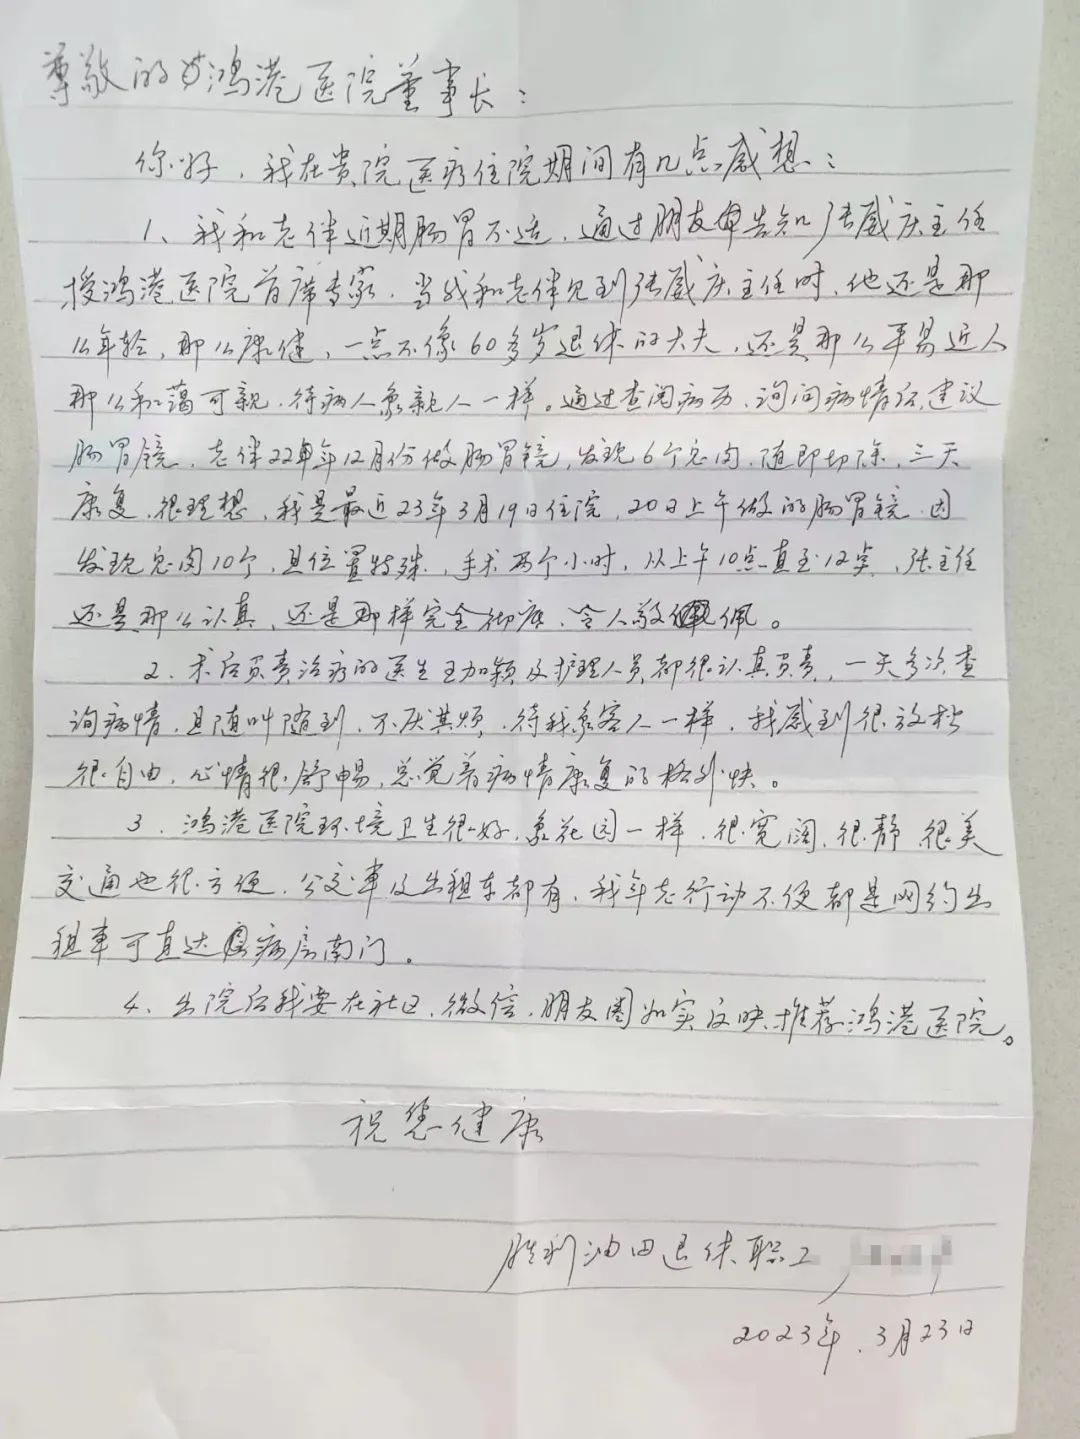 尊敬的鸿港医院董事长：
你好，我在贵院医疗住院期间有几点感想：
1、我和老伴近期肠胃不适，通过朋友告知张威庆主任
授鸿港医院首席专家，当我和老伴见到张威庆主任时，他还是那
么年轻，那么康健，一点不像60多岁退休的大夫，还是那么平易近人
那么和蔼可亲，待病人象亲人一样。通过查阅病历、询问病情后，建议
肠胃镜，老伴22年12月份做肠胃镜，发现6个息肉，随即切除，三天
康复，很理想，我是最近23年3月19日住院，20日上午做的肠胃镜，因
发现息肉10个，且位置特殊，手术两个小时，从上午10点一直至12点，张主任
还是那么认真，还是那样完全彻底，令人敬佩。
2、术后负责治疗的医生王加颖及护理人员都很认真负责，一天多次查
询病情，且随叫随到，不厌其烦，待我象客人一样，我感到很放松
很自由，心情很舒畅，总觉着病情康复的格外快。
3、鸿港医院环境卫生很好，象花园一样，很宽阔，很静，很美
交通也很方便，公交车及出租车都有，我年老行动不便都是网约出
租车可直达病房南门。
4、出院后我要在社区、微信、朋友圈如实反映推荐鸿港医院。
祝您健康
胜利油田退休职工
2023年.3月23日